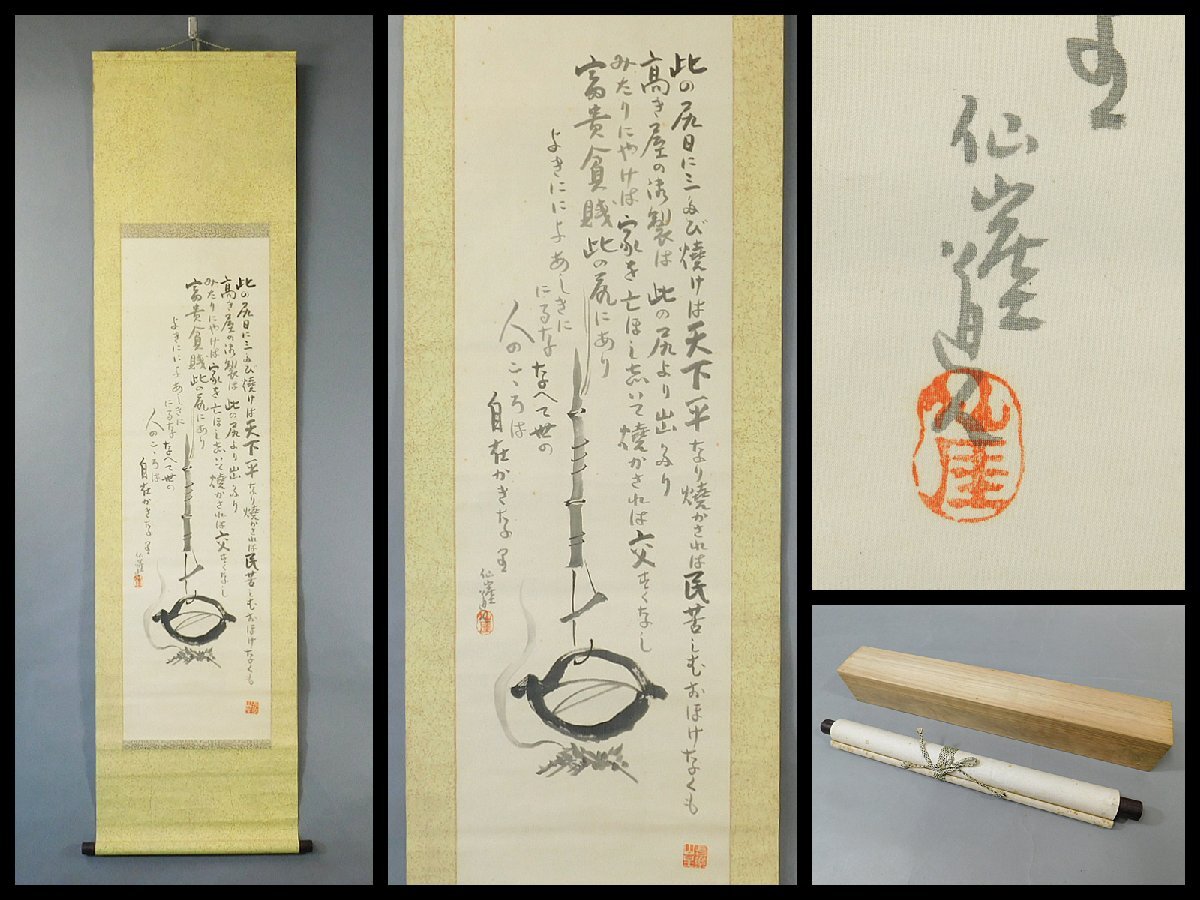 此の尻日に三たび燒けは天下平なり燒かされは民苦しむおほけなくも
高き屋の御製は此の尻より出たり
みたりにやけは家を亡ほし志いて燒かされは交すくなし
富貴貧賎此の尻にあり
よきにによあしきに
にるななへて世の
人のこゝろは
自在かき
仙崖
仙崖道人
仙崖